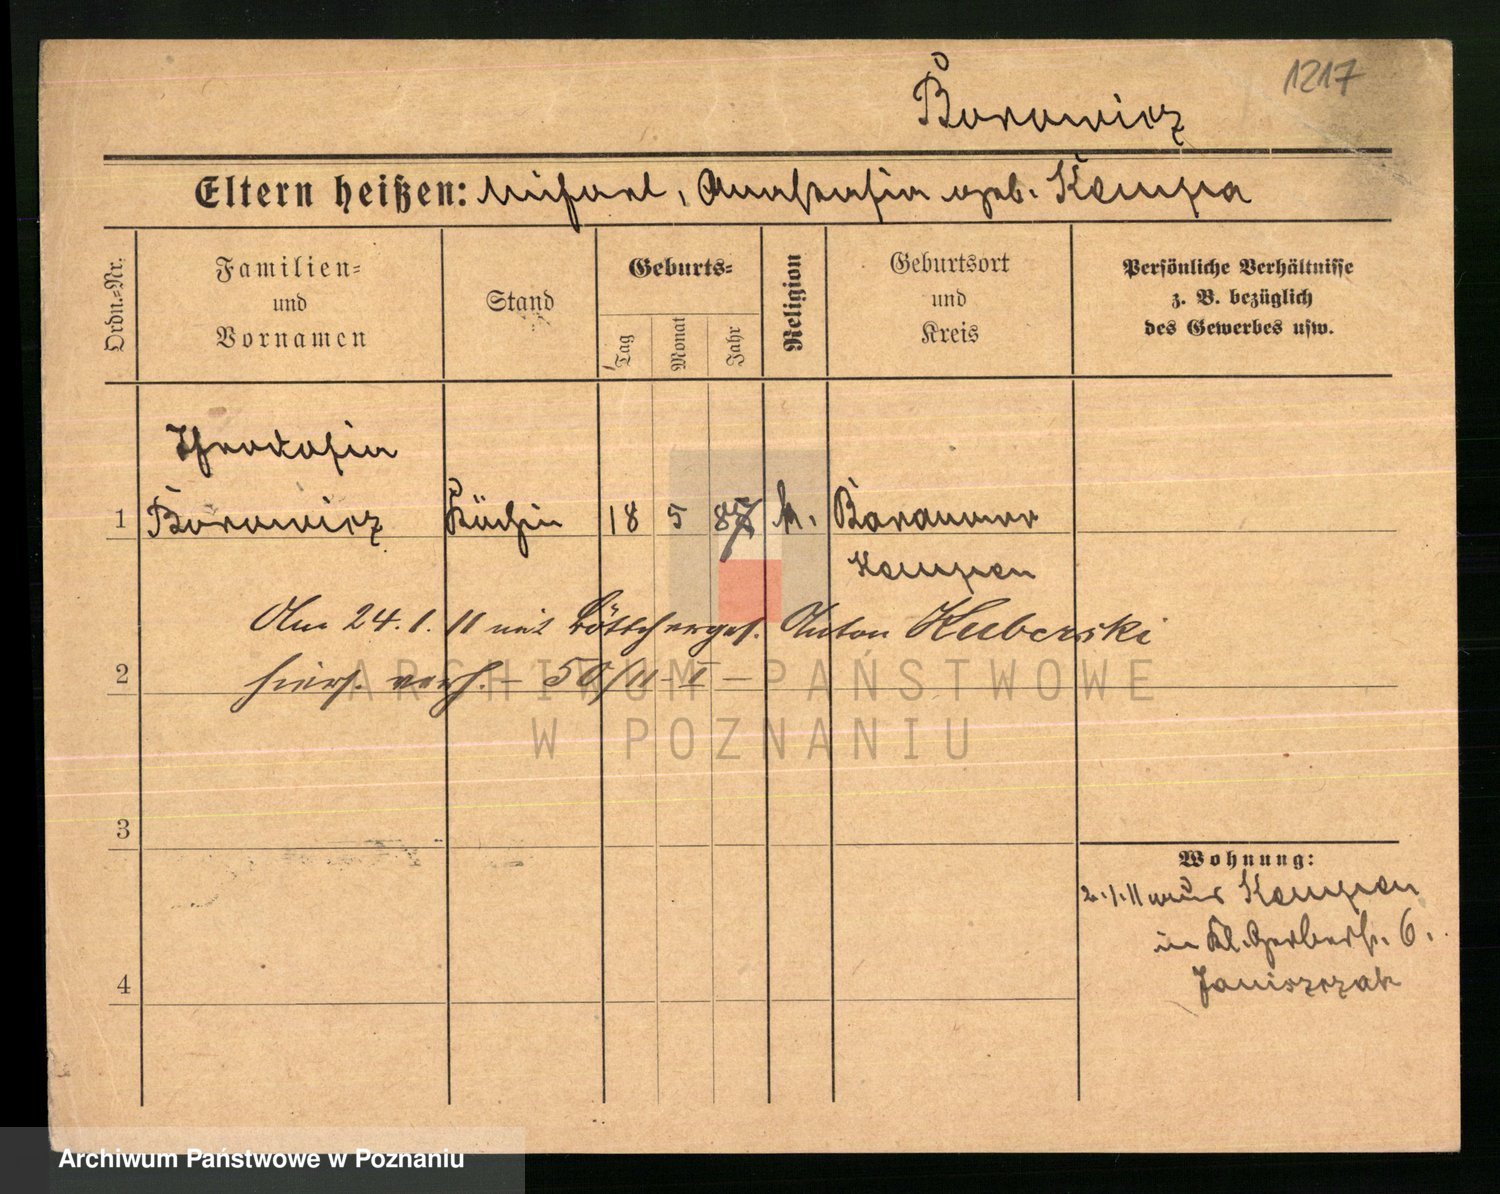 1217
Borowicz
Eltern heißen: Michael, Anastasia geb. Kempa
Ordn.-Nr.
Familien-
und
Vornamen
Stand
Geburts-
Tag
Monat
Jahr
Religion
Geburtsort
und
Kreis
Persönliche Verhältnisse
z. B. bezüglich
des Gewerbes usw.
Theodosia
1 Borowicz Köchin 18 5 k. Baranow
Kempen
Am 24.1.11 mit Böttcherges. Anton Kuberski
2 hiers. verh. – 50/11 – I –
ARCHIWUM PAŃSTWOWE
W POZNANIU
3
Wohnung:
2.1.11 Kempen
in Kl. Gerberstr. 6.
4 Janiszczak
Archiwum Państwowe w Poznaniu